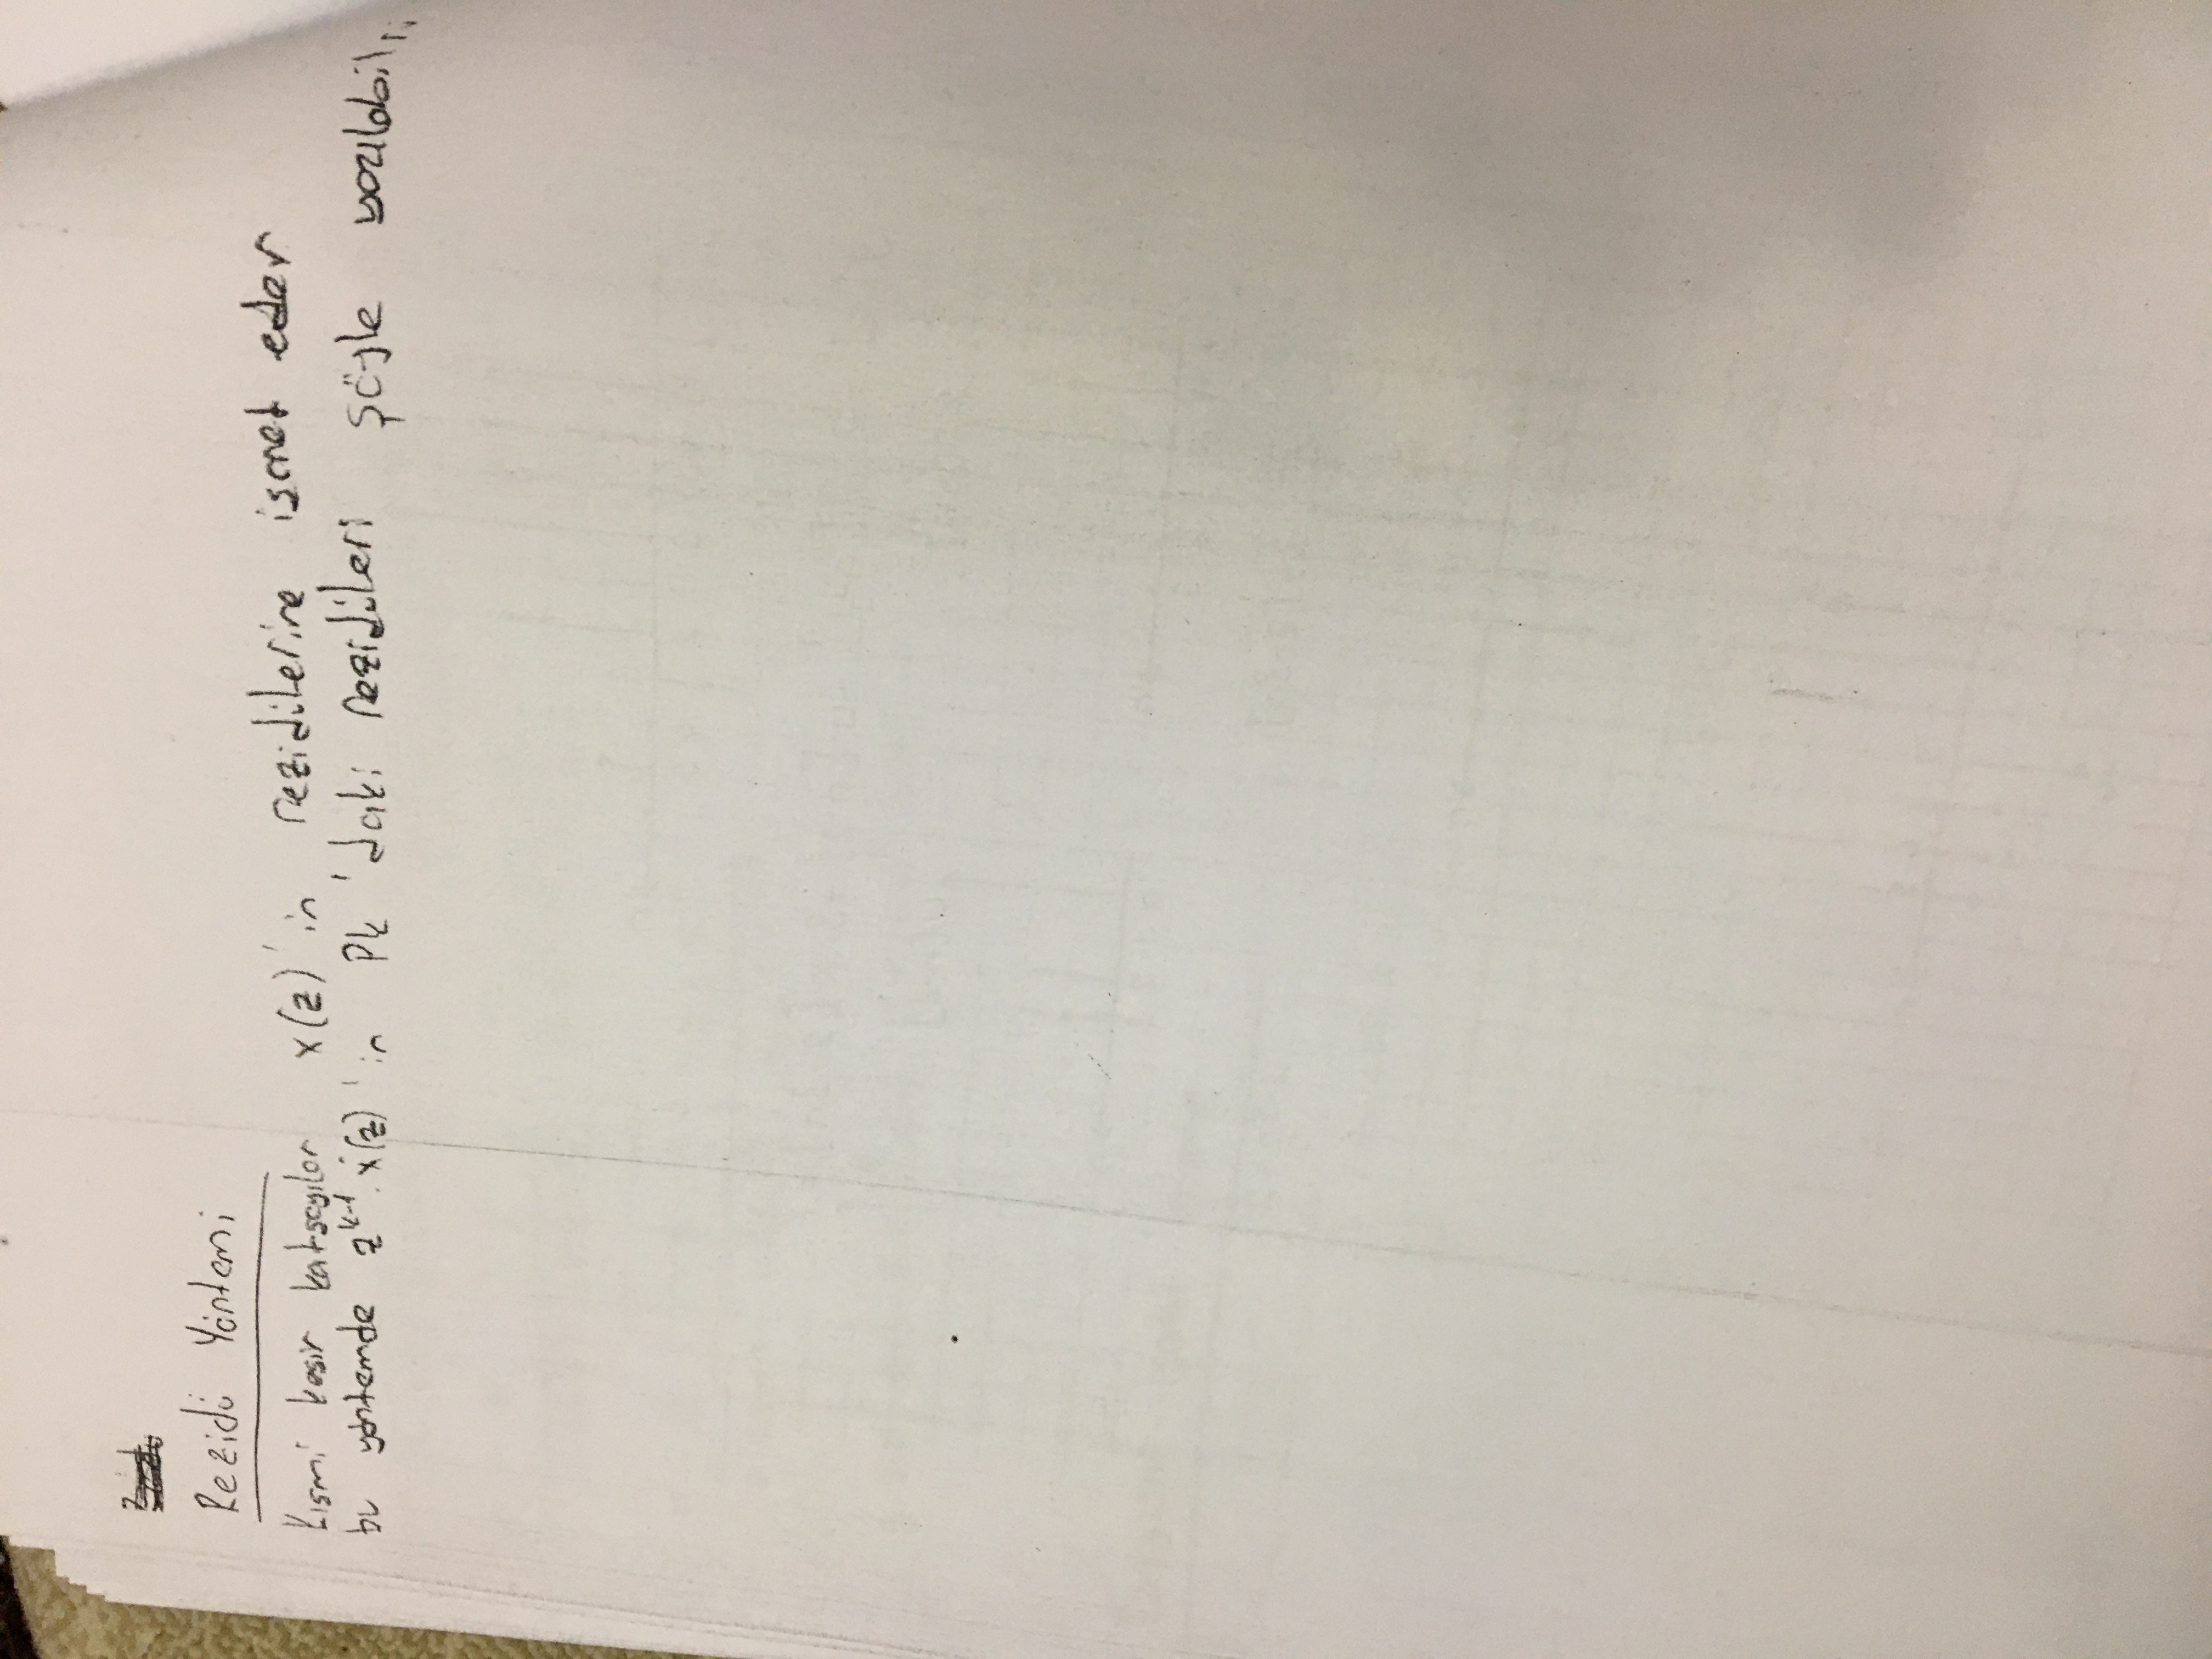 Rezidü Yöntemi
Kısmi kesir katsayılar x(z)'in rezidülerine işaret eder
bu yöntemde z^k-1 . x(z)'in Pk 'daki rezidüleri şöyle yazılabilir